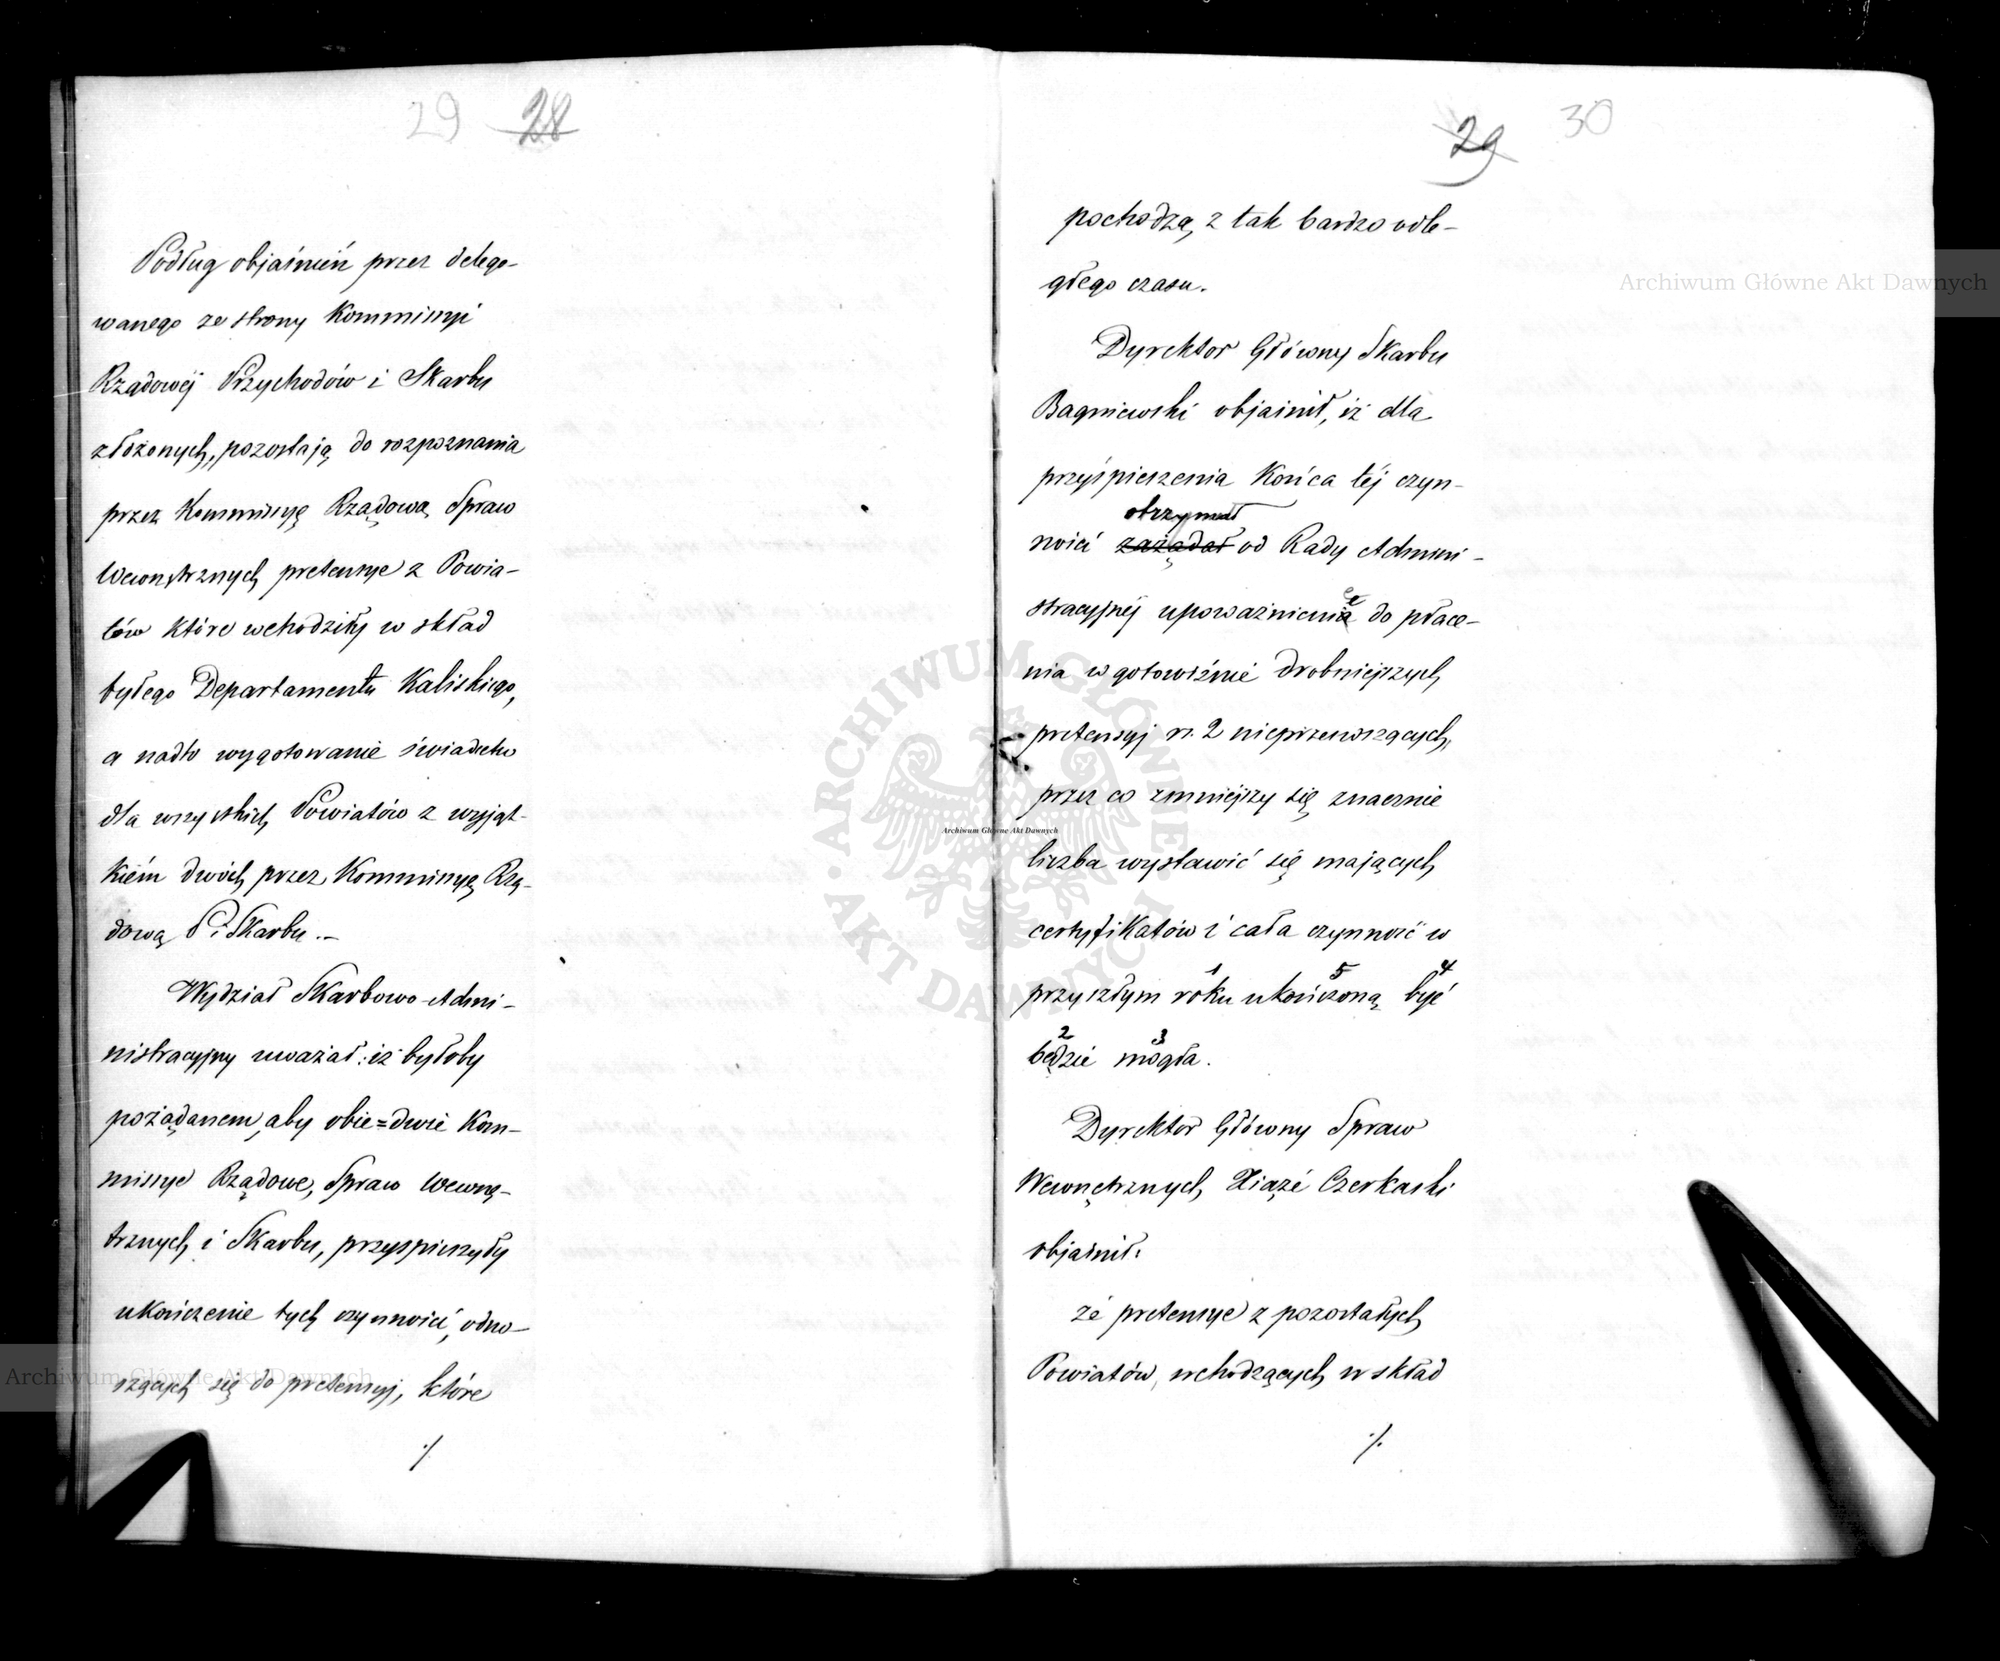 29 28
Podług objaśnień przez delego-
wanego ze strony Kommissyi
Rządowéj Przychodów i Skarbu
złożonych, pozostają do rozpoznania
przez Kommissyę Rządową Spraw
Wewnętrznych pretensye z Powia-
tów które wchodziły w skład
byłego Departamentu Kaliskiego,
a nadto wygotowanie świadectw
dla wszystkich Powiatów z wyjąt-
kiém dwóch przez Kommissyę Rzą-
dową P. i Skarbu.-
Wydział Skarbowo-Admi-
nistracyjny uważał: iż byłoby
pożądanem, aby obie=dwie Kom-
missye Rządowe, Spraw Wewnę-
trznych i Skarbu, przyspieszyły
ukończenie tych czynności, odno-
szących się do pretensyj, które
./.
29 30
pochodzą z tak bardzo odle-
głego czasu.
Dyrektor Główny Skarbu
Bagniewski objaśnił, iż dla
przyśpieszenia Końca téj czyn-
otrzymał
ności zażądał od Rady Admini-
stracyjnéj upoważnienie do płace-
nia w gotowiźnie drobniejszych
pretensyj rs. 2 nieprzenoszących,
przez co zmniejszy się znacznie
liczba wystawić się mających
certyfikatów i cała czynność w
1 5 4
przyszłym roku ukończoną być
2 3
będzie mogła.
Dyrektor Główny Spraw
Wewnętrznych, Xiąże Czerkaski
objaśnił:
że pretensye z pozostałych
Powiatów, wchodzących w skład
./.
Archiwum Główne Akt Dawnych
Archiwum Główne Akt Dawnych
Archiwum Główne Akt Dawnych
ARCHIWUM GŁÓWNE • AKT DAWNYCH •